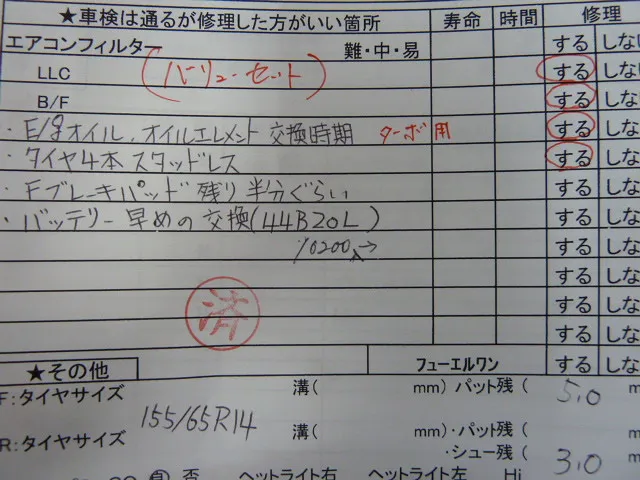 ★車検は通るが修理した方がいい箇所 寿命 時間 修理
エアコンフィルター 難・中・易 する しない
LLC (バリュー・セット) する しな
B/F する しな
・E/gオイル、オイルエレメント 交換時期 ターボ用 する しな
・タイヤ4本 スタッドレス する しな
・Fブレーキパッド 残り 半分ぐらい する しな
・バッテリー 早めの交換(44B20L) する しな
する しな
する しな
済 する しな
する しな
★その他 フューエルワン する しな
F:タイヤサイズ 溝( mm) パット残( 5.0
155/65R14
R:タイヤサイズ 溝( mm)・パット残(
・シュー残( 3.0
否 ヘットライト右 ヘットライト左 Hi